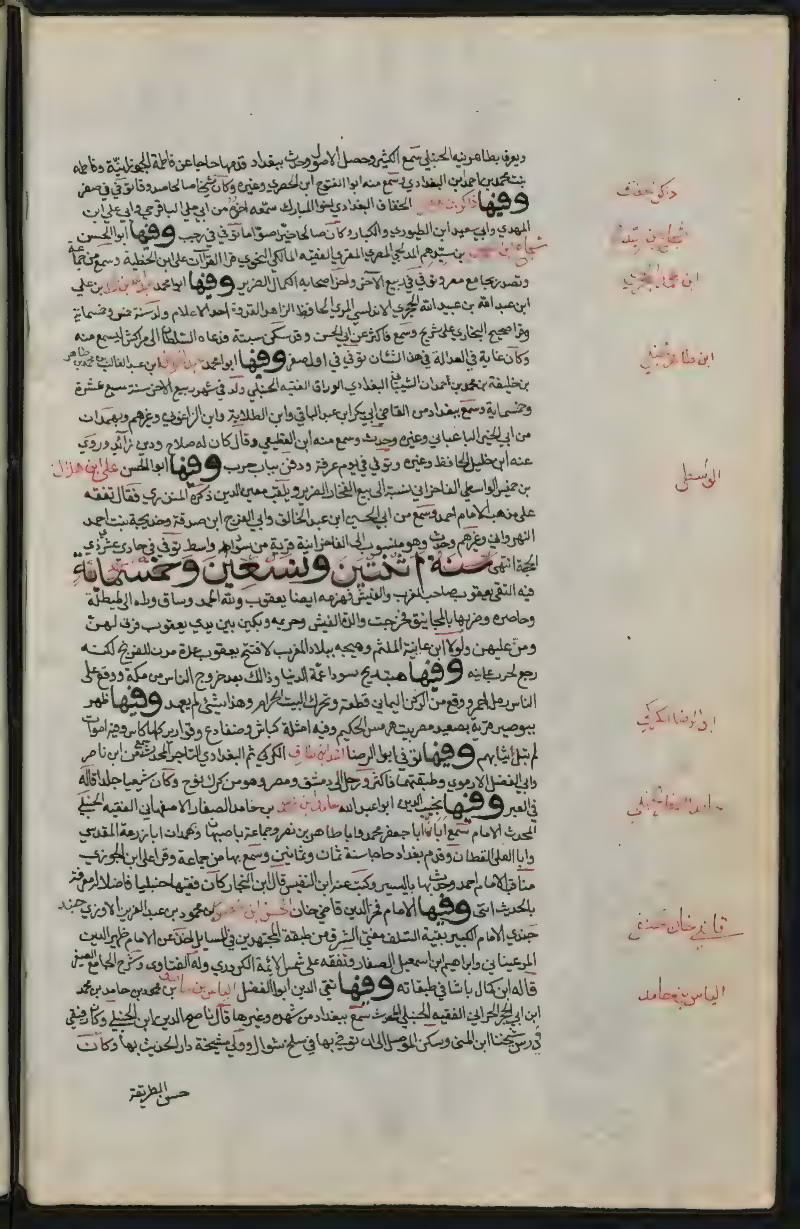 ويعرف بطاهر بنيه الحنبلي سمع الكثير وحصل الاصول وحدث ببغداد قدمها حاجا عن فاطمة الجوزدانية وفاطمه
بنت محمد بن احمد ابن البغدادي وسمع منه ابوا الفتوح ابن الحصري وغيره وكان شيخا صالحا صدوقا توفي في صفر
وفيها ذاكر بن الخفاف البغدادي ابو المبارك سمعه اخوه من ابي علي الباقرحي وابي علي ابن
المهدي وابي سعيد ابن الطيوري والكبار وكان صالحا خيرا صواما توفي في رجب وفيها ابوا الحسن
شجاع بن محمد بن سيدهم المدلجي المصري المقري الفقيه المالكي النحوي قرا القرآت على ابن الحطية وسمع من جماعة
وتصدر بجامع مصر وتوفي في ربيع الاخر واخر اصحابه الكمال الضرير وفيها ابو محمد عبد الله بن علي
ابن عبد الله بن عبيد الله الحجري الاندلسي المري الحافظ الزاهد القدوة احد الاعلام ولد سنة خمس وخمسماية
وقرا صحيح البخاري على شريح وسمع فاكثر عن ابي الحسن وقد سكن سبتة فدعاه السلطان الى مراكش ليسمع منه
وكان غاية في العدالة في هذا الشان توفي في اول صفر وفيها ابوا محمد عبد ابن عبد الغالب بن محمد بن طاهر
بن خليفة بن محمد بن احمدان الشيباني البغدادي الوراق الفقيه الحنبلي ولد في شهر ربيع الاخر سنة سبع عشرة
وخمسماية وسمع ببغداد من القاضي ابي بكر ابن عبد الباقي وابن الطلاية وابن الزاغوني وغيرهم وبهمدان
من ابي الخير الباغباني وغيره وحدث وسمع منه ابن القطيعي وقال كان له صلاح ودين زائد وروي
عنه ابن خليل الحافظ وغيره وتوفي في يوم عرفة ودفن بباب حرب وفيها ابو الحسن على ابن هلال
بن خميس الواسطي الفاخراني الضرير ويلقب معين الدين ذكره المنذري فقال تفقه
على مذهب الامام احمد وسمع من ابي الحسين ابن عبد الخالق وابي الفرج ابن صدقة وخديجة بنت احمد
النهرواني وغيرهم وحدث وهو منسوب الى الفاخرانية قرية من سواد واسط توفي في حادي عشر ذي
الحجة انتهى سنة اثنتين وتسعين وخمسماية
فيه التقى يعقوب صاحب المغرب والفنش فهزمه ايضا يعقوب ولله الحمد وساق وراه الى طليطلة
وحاصره وضربها بالمجانيق فخرجت والدة الفنش وحريمه وبكين بين يدي يعقوب فرق لهن
ومن عليهن ولولا ابن غانية الملثم وهيجه ببلاد المغرب لافتتح يعقوب عدة مدن للفرنج لكنه
رجع لحرب غانية وفيها هبت ريح سودا عمة الدنيا وذالك بعد خروج الناس من مكة ووقع على
الناس رمل احمر ووقع من الركن اليماني قطعة وتحرك البيت الحرام وهذا شئ لم يعهد وفيها ظهر
ببوصير قرية بصعيد مصر بيت هرمس الحكيم وفيه امثلة كباش وضفادع وقوارير كلها كاس وفيه اموات
لم تبل ثيابهم وفيها توفي ابوا الرضا احمد ابن طارق الكركي ثم البغدادي التاجر المحدث سمع من ابن ناصر
وابي الفضل الارموي وطبقتهما فاكثر ورحل الى دمشق ومصر وهو من كرك نوح وكان شيعيا جلدا قاله
في العبر وفيها محب الدين ابوا عبد الله حامد بن محمد بن حامد الصفار الاصفهاني الفقيه الحنبلي
المحدث الامام سمع اباه وابا جعفر محمد وابا طاهر بن نصر وجماعة باصبهان وبهمدان ابا زرعة المقدسي
وابا العلى القطان وقدم بغداد حاجا سنة ثمان وثمانين وسمع بها من جماعة وقرا على ابن الجوزي
مناقب الامام احمد وحدث بها باليسير وكتب عنه ابن النفيس قال ابن النجار كان فقيها حنبليا فاضلا له معرفة
بالحديث انتهى وفيها الامام فخر الدين قاضي خان الحسن ابن منصور بن محمود بن عبد العزيز الاوزجندي
جندي الامام الكبير بقية السلف مفتي الشرق من طبقة المجتهدين في المسايل اخذ عن الامام ظهير الدين
المرغيناني وابراهيم ابن اسمعيل الصفار وتفقه على شمس الائمة الكردري وله الفتاوى وشرح الجامع الصغير
قاله ابن كمال باشا في طبقاته وفيها تقي الدين ابوا الفضل الياس بن حامد بن محمد بن حامد بن محمد
ابن ابي الحجر الحراني الفقيه الحنبلي المحدث سمع ببغداد من شهده وغيرها قال ناصح الدين ابن الحنبلي وكان رفيقي
في درس شيخنا ابن المنى وسكن الموصل الى ان توفي بها في سلخ شوال وولي مشيخة دار الحديث بها وكان
حسن الطريقة
ذاكر خفاف
ابن محمد الحجري
ابن طاهر حنبلي
الواسطي
ابو الرضا الكركي
حامد الصفار حنبلي
قاضي خان حنفي
الياس بن حامد